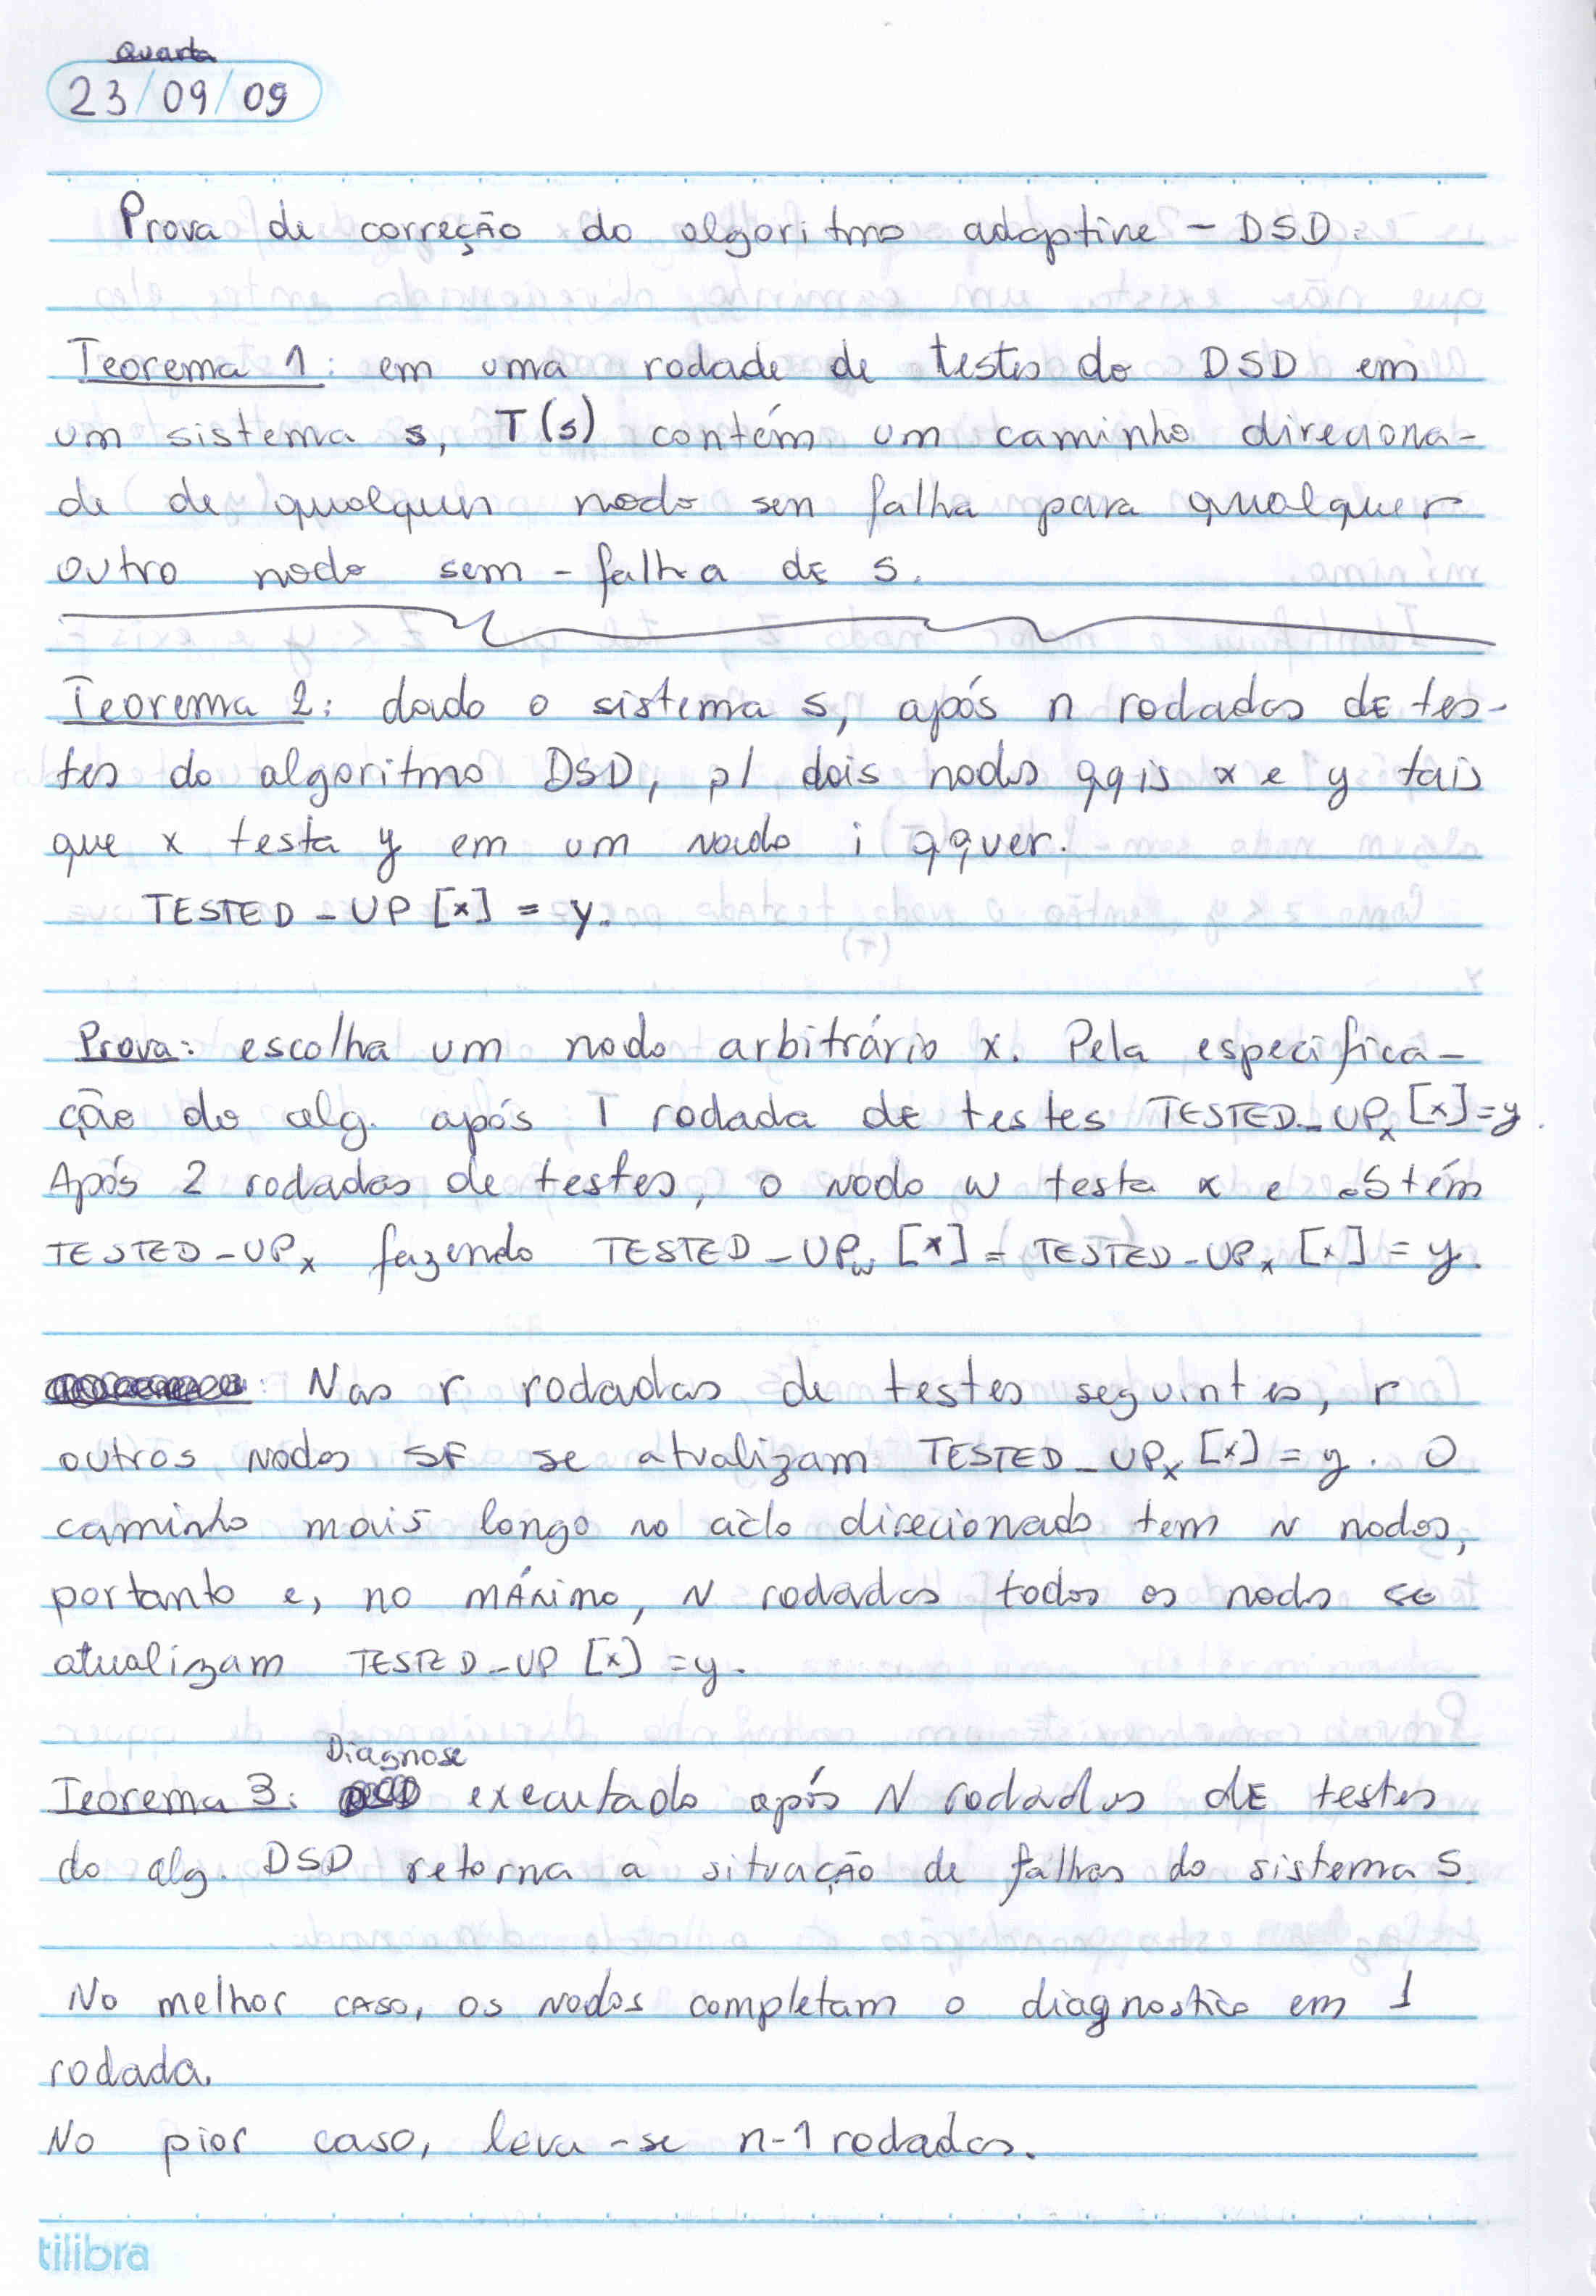 Quarta
23/09/09
Prova de correção do algoritmo adaptive - DSD:
Teorema 1: em uma rodade de testes do DSD em
um sistema s, T(s) contém um caminho direciona-
do de qualquer nodo sem falha para qualquer
outro nodo sem-falha de s.
Teorema 2: dado o sistema s, após n rodadas de tes-
tes do algoritmo DSD, p/ dois nodos qqis x e y tais
que x testa y em um nodo i qquer.
TESTED_UP [x] = y.
Prova: escolha um nodo arbitrário x. Pela especifica-
ção do alg. após 1 rodada de testes TESTED_UPx [x]=y.
Após 2 rodadas de testes, o nodo w testa x e obtém
TESTED_UPx fazendo TESTED_UPw [x] = TESTED_UPx [x] = y.
: Nas r rodadas de testes seguintes, r
outros nodos SF se atualizam TESTED_UPx [x] = y. O
caminho mais longo no ciclo direcionado tem N nodos,
portanto e, no máximo, N rodadas todos os nodos se
atualizam TESTED_UP [x] = y.
Diagnose
Teorema 3: executado após N rodadas de testes
do alg. DSD retorna a situação de falhas do sistema S.
No melhor caso, os nodos completam o diagnostico em 1
rodada.
No pior caso, leva-se n-1 rodadas.
tilibra